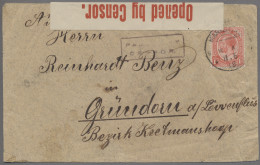 Opened by Censor.
Herrn
Reinhardt Benz
in
Gründorn a/Löwenfluss
Bezirk Keetmanshoop